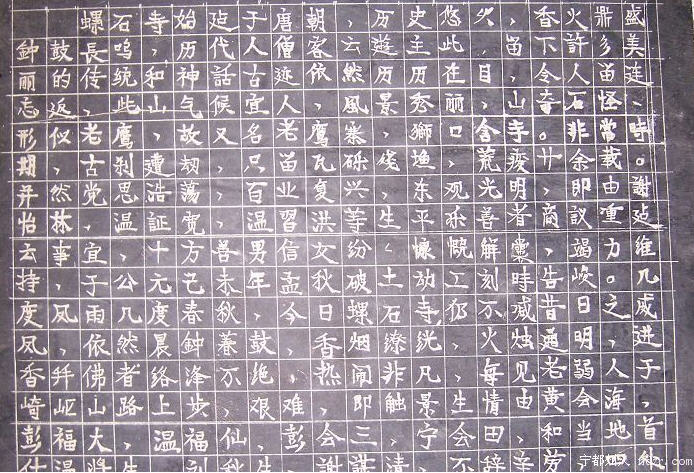 螺石寺始延于唐朝,历史悠久,香火鼎盛
钟鼓長鸣,历代人僧客云遊主此,留下許多美
丽的传统,和神話古迹依然历历在目,令人留连
忘返,此山气候宜人,風景秀丽,山奇石怪、
形似老鹰,故又名老鹰寨,獅口含寺。非常時
期,古刹遭劫,只留瓦砾,残渔荒廢廿余載。
并然党思浩荡,百业复兴,东观光明,即由謝
怡林,温証宽,温習洪等生平乐善者,商議重延
云事宜,十方善男信女纷纷慷慨解囊,竭力維
持,于公元己未年孟秋破土动工刻時告峻。几
度风雨几度春秋,今日螺石寺犯不减昔日之咸
风,依然晨鐘暮鼓,香烟缭绕,火烛通明,进
香幷佛者络泽不绝,热闹非凡,每见老弱人于
崎岖山路上步,艰难,即触景生情由黄会海,
彭福大,温福仙,彭会三,宁会田,和当地首
宁都知青 .com